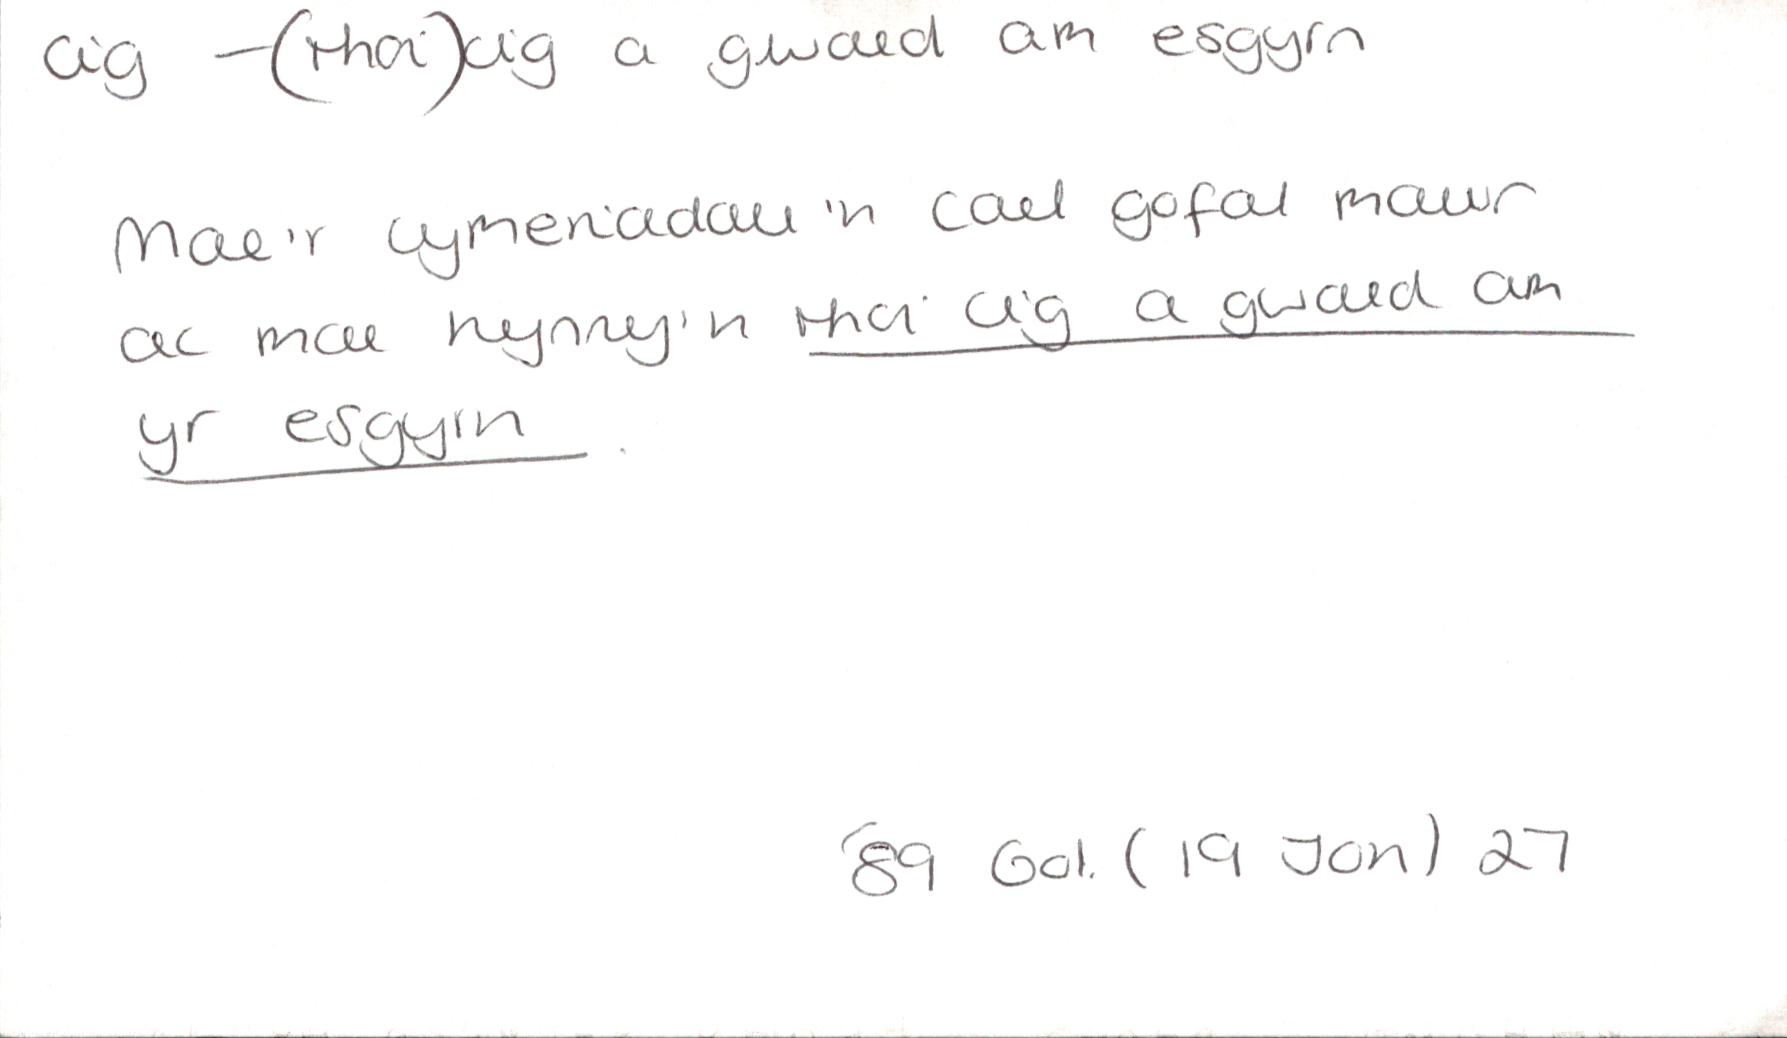 cig – (rhoi) cig a gwaed am esgyrn
Mae'r cymeriadau'n cael gofal mawr
ac mae hynny'n rhoi cig a gwaed am
yr esgyrn.
'89 Gol. (19 Ion) 27